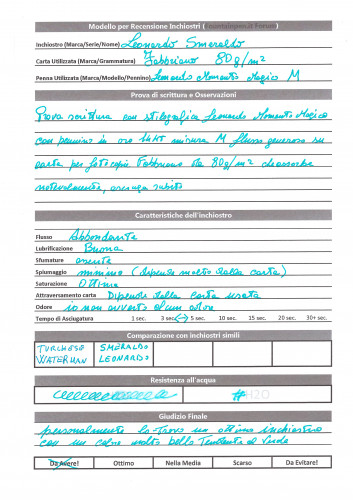 Modello per Recensione Inchiostri ( Fountainpen.it Forum )
Inchiostro (Marca/Serie/Nome) Leonardo Smeraldo
Carta Utilizzata (Marca/Grammatura) Fabbriano 80g/m²
Penna Utilizzata (Marca/Modello/Pennino) Leonardo Momento Magico M
Prova di scrittura e Osservazioni
Prova scrittura con stilografica Leonardo Momento Magico
con pennino in oro 14KT misura M flusso generoso su
carta per fotocopie Fabbriano da 80g/m² che assorbe
notevolmente, asciuga subito
Caratteristiche dell'inchiostro
Flusso Abbondante
Lubrificazione Buona
Sfumature assente
Spiumaggio minimo (dipende molto dalla carta)
Saturazione Ottima
Attraversamento carta Dipende dalla carta usata
Odore io non avverto alcun odore
Tempo di Asciugatura 1 sec. 3 sec. 5 sec. 10 sec. 15 sec. 20 sec. 30+ sec.
Comparazione con inchiostri simili
TURCHESE SMERALDO
WATERMAN LEONARDO
Resistenza all'acqua
#H2O
Giudizio Finale
personalmente lo trovo un ottimo inchiostro
con un colore molto bello Tendente al Verde
Da Avere! Ottimo Nella Media Scarso Da Evitare!